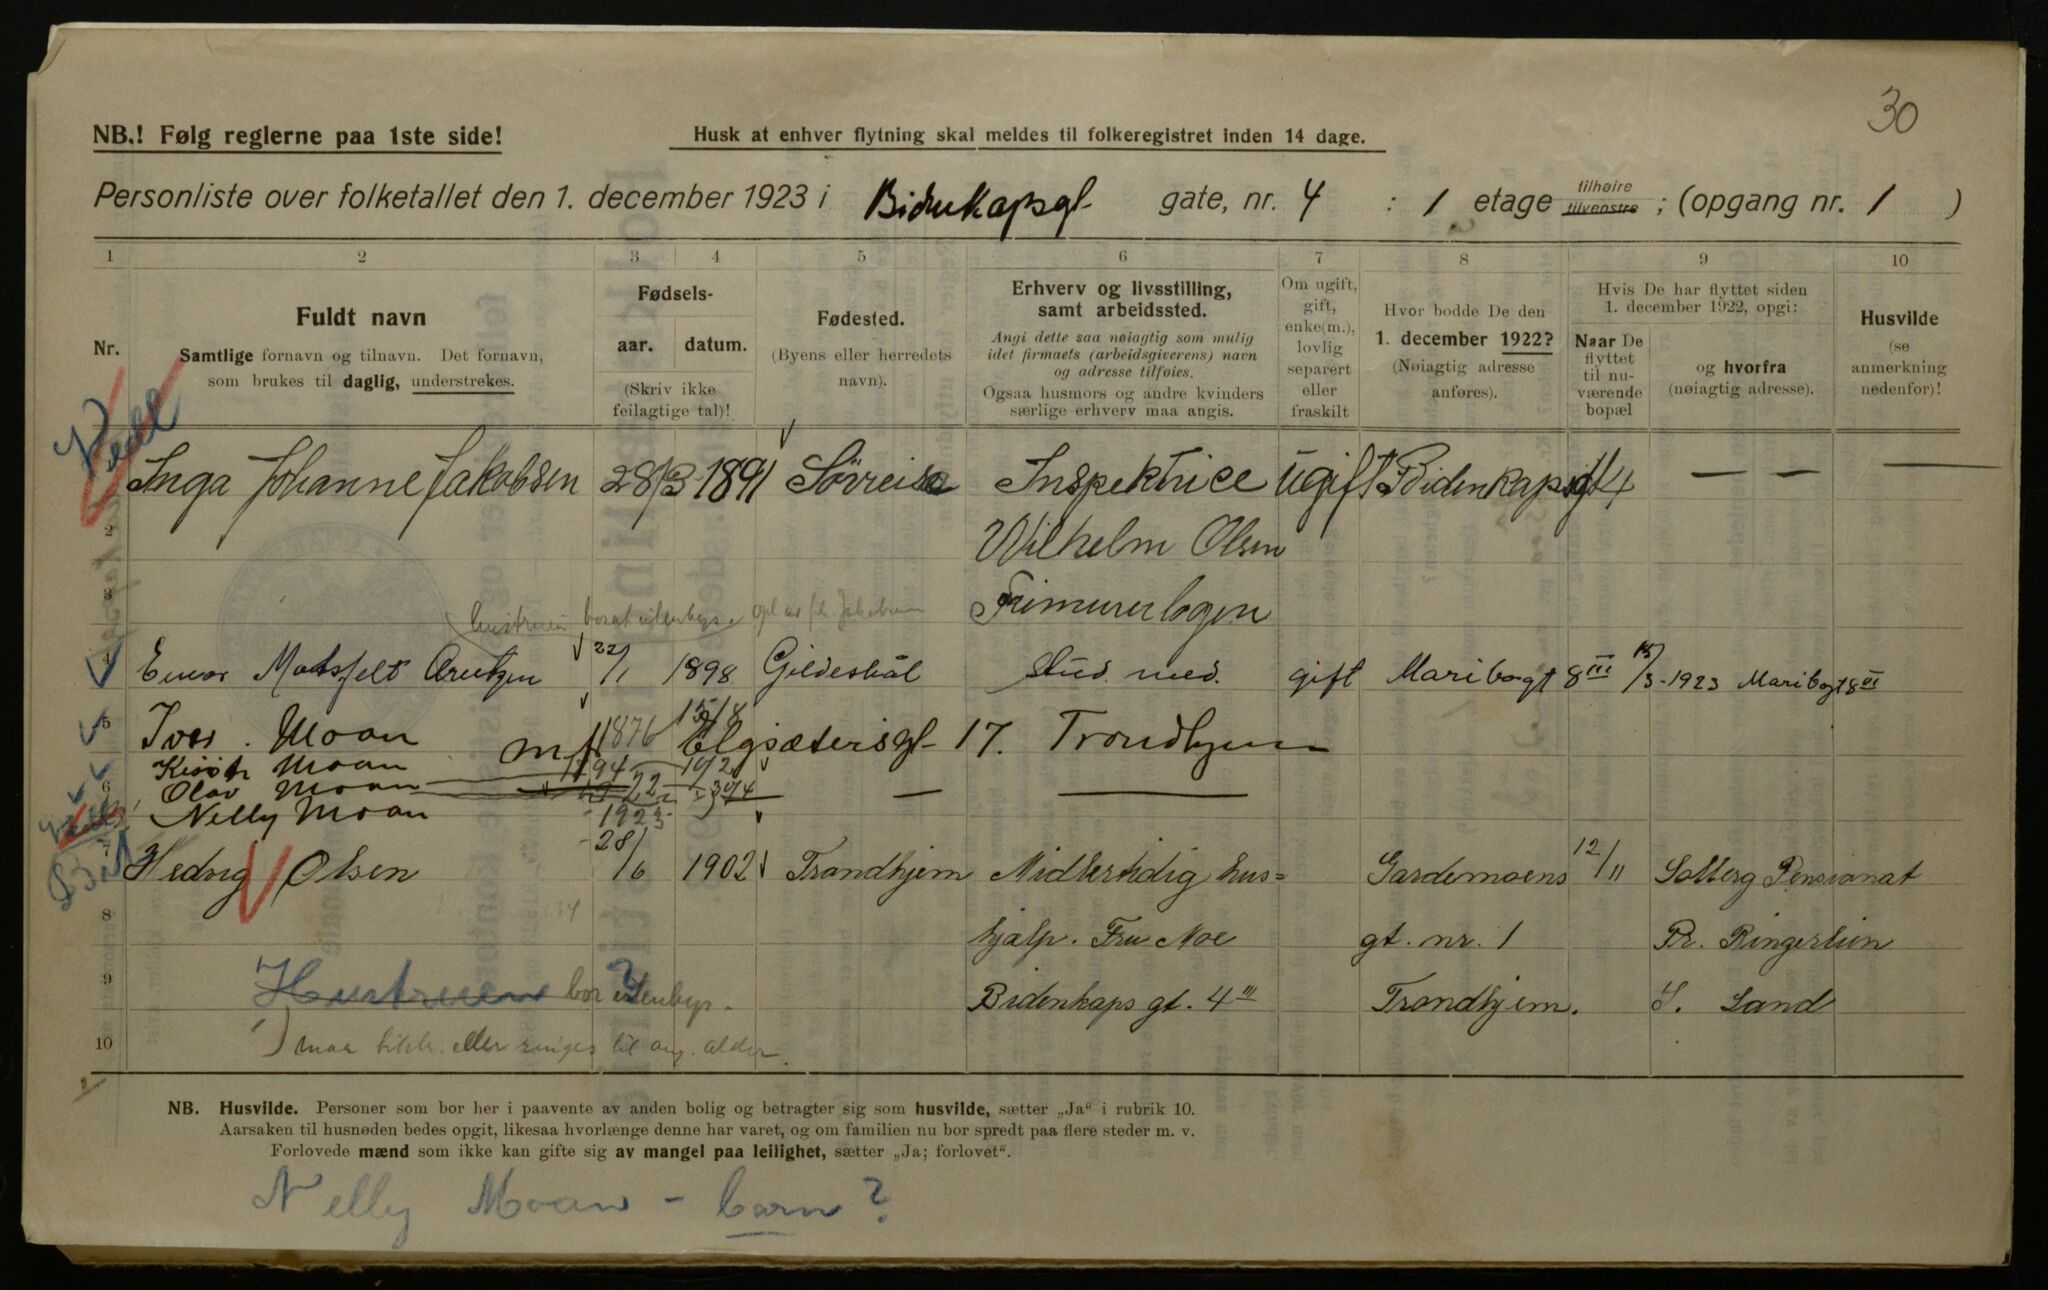 30
NB.! Følg reglerne paa 1ste side!
Husk at enhver flytning skal meldes til folkeregistret inden 14 dage.
Personliste over folketallet den 1. december 1923 i Bidenkapsgt gate, nr. 4 : 1 etage tilhøire tilvenstre ; (opgang nr. 1 )
1 2 3 4 5 6 7 8 9 10
Nr.
Fuldt navn
Samtlige fornavn og tilnavn. Det fornavn,
som brukes til daglig, understrekes.
Fødsels-
aar. datum.
(Skriv ikke
feilagtige tal)!
Fødested.
(Byens eller herredets
navn).
Erhverv og livsstilling,
samt arbeidssted.
Angi dette saa nøiagtig som mulig
idet firmaets (arbeidsgiverens) navn
og adresse tilføies.
Ogsaa husmors og andre kvinders
særlige erhverv maa angis.
Om ugift,
gift,
enke(m.),
lovlig
separert
eller
fraskilt
Hvor bodde De den
1. december 1922?
(Nøiagtig adresse
anføres).
Hvis De har flyttet siden
1. december 1922, opgi:
Naar De
flyttet
til nu-
værende
bopæl
og hvorfra
(nøiagtig adresse).
Husvilde
(se
anmerkning
nedenfor)!
Inga Johanne Jakobsen 28/3 1891 Sørreisa Inspektrice ugift Bidenkapsgt 4 — — —
2 Wilhelm Olsen
3 Frimurerlogen
hustruen bor utenbys
4 Einar Motsfelt Arntzen 22/1 1898 Gildeskål stud. med. gift Maribogt 8 III 15/3-1923 Maribogt 8 III
5 Iver Moan 1876 15/8 Elgsætersgt 17. Trondhjem
Moan 1894 10/2
6 Olav Moan
Nelly Moan 1923
7 Hedvig Olsen 28/6 1902 Trondhjem Midlertidig hus= Gardemoens 12/11 Solberg Pensionat
8 hjælp. Fru Moe gt. nr. 1 Pr. Ringerlien
9 Hustruen bor utenbys. Bidenkaps gt. 4 III Trondhjem. S. Land
10 maa eller ringes til ang. alder.
NB. Husvilde. Personer som bor her i paavente av anden bolig og betragter sig som husvilde, sætter „Ja“ i rubrik 10.
Aarsaken til husnøden bedes opgit, likesaa hvorlænge denne har varet, og om familien nu bor spredt paa flere steder m. v.
Forlovede mænd som ikke kan gifte sig av mangel paa leilighet, sætter „Ja; forlovet“.
Nelly Moan - barn?